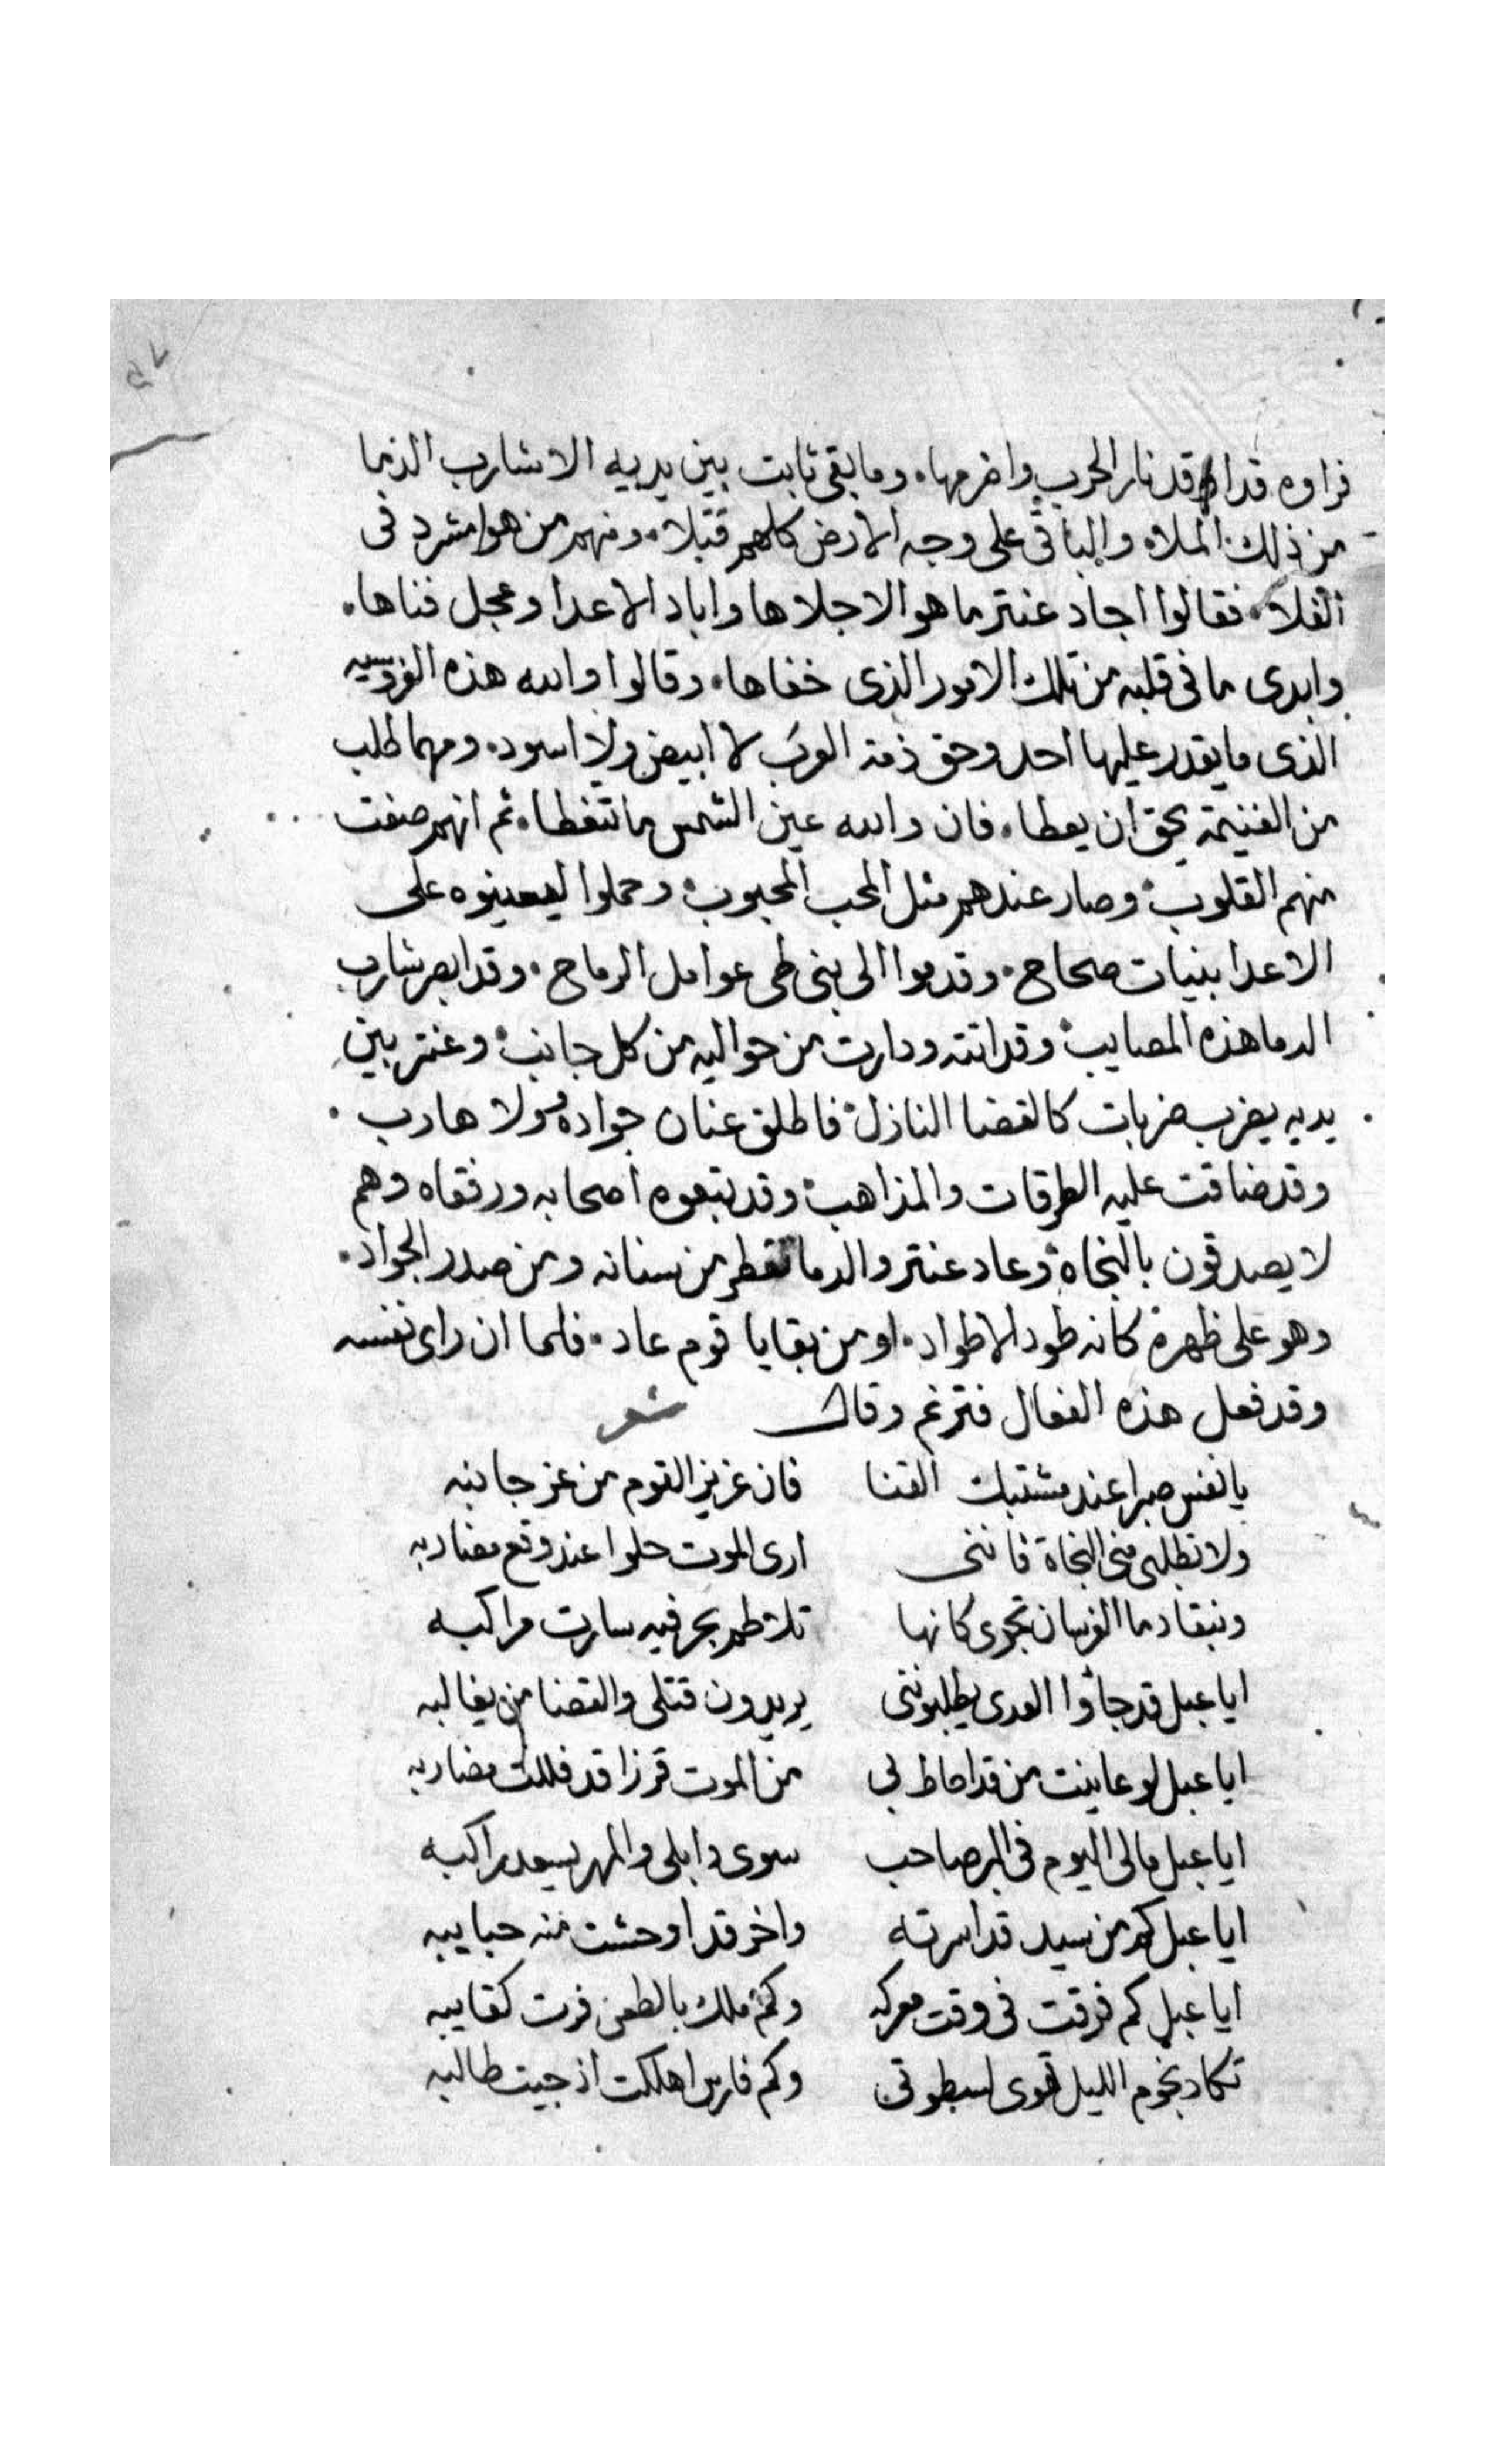 ٥٧
فراوه قد اوقد نار الحرب واضرمها. وما بقى ثابت بين يديه الا شارب الدما
من ذلك الملاء والباقى على وجه الارض كلهم قتلا. ومنهم من هوا مشرد فى
الفلا. فقالوا اجاد عنتر ما هو الا جلاها واباد الاعدا وعجل فناها.
وابدى ما فى قلبه من تلك الامور الذى خفاها. وقالوا والله هذه الفروسيه
الذى ما يقدر عليها احد وحق ذمة العرب لا ابيض ولا اسود. ومهما طلب
من الغنيمة يحق ان يعطا. فان والله عين الشمس ما تتغطا. ثم انهم صفت
منهم القلوب. وصار عندهم مثل المحب المحبوب. وحملوا ليعينوه على
الاعدا بنيات صحاح. وقدموا الى بنى طى عوامل الرماح. وقد ابصر شارب
الدما هذه المصايب. وقد اتته ودارت من حواليه من كل جانب. وعنتر بين
يديه يضرب ضربات كالقضا النازل. فاطلق عنان جواده وولا هارب.
وقد ضاقت عليه الطرقات والمذاهب. وقد تبعوه اصحابه ورفقاه وهم
لا يصدقون بالنجاة. وعاد عنتر والدما تقطر من سنانه ومن صدر الجواد.
وهو على ظهره كانه طود الاطواد. او من بقايا قوم عاد. فلما ان راى نفسه
وقد فعل هذه الفعال فترنم وقال شعر
يا نفس صبرا عند مشتبك القنا فان عزيز القوم من عز جانبه
ولا تطلبى منى النجاة فاننى ارى الموت حلوا عند وقع مضاربه
وتبقا دما الفرسان تجرى كانها تلاطم بحر فيه سارت مراكبه
ايا عبل قد جاؤا العدى يطلبوننى يريدون قتلى والقضا من يغالبه
ايا عبل لو عاينت من قد احاط بى من الموت قرزا قد فللت مضاربه
ايا عبل مالى اليوم فى البر صاحب سوى ذابلى والمهر يسعد راكبه
ايا عبل كم من سيد قد اسرته واخر قد اوحشت منه حبايبه
ايا عبل كم فرقت فى وقت معركه وكم ملك بالطعن فرت كتايبه
تكاد نجوم الليل تهوى لسطوتى وكم فارس اهلكت اذ جيت طالبه